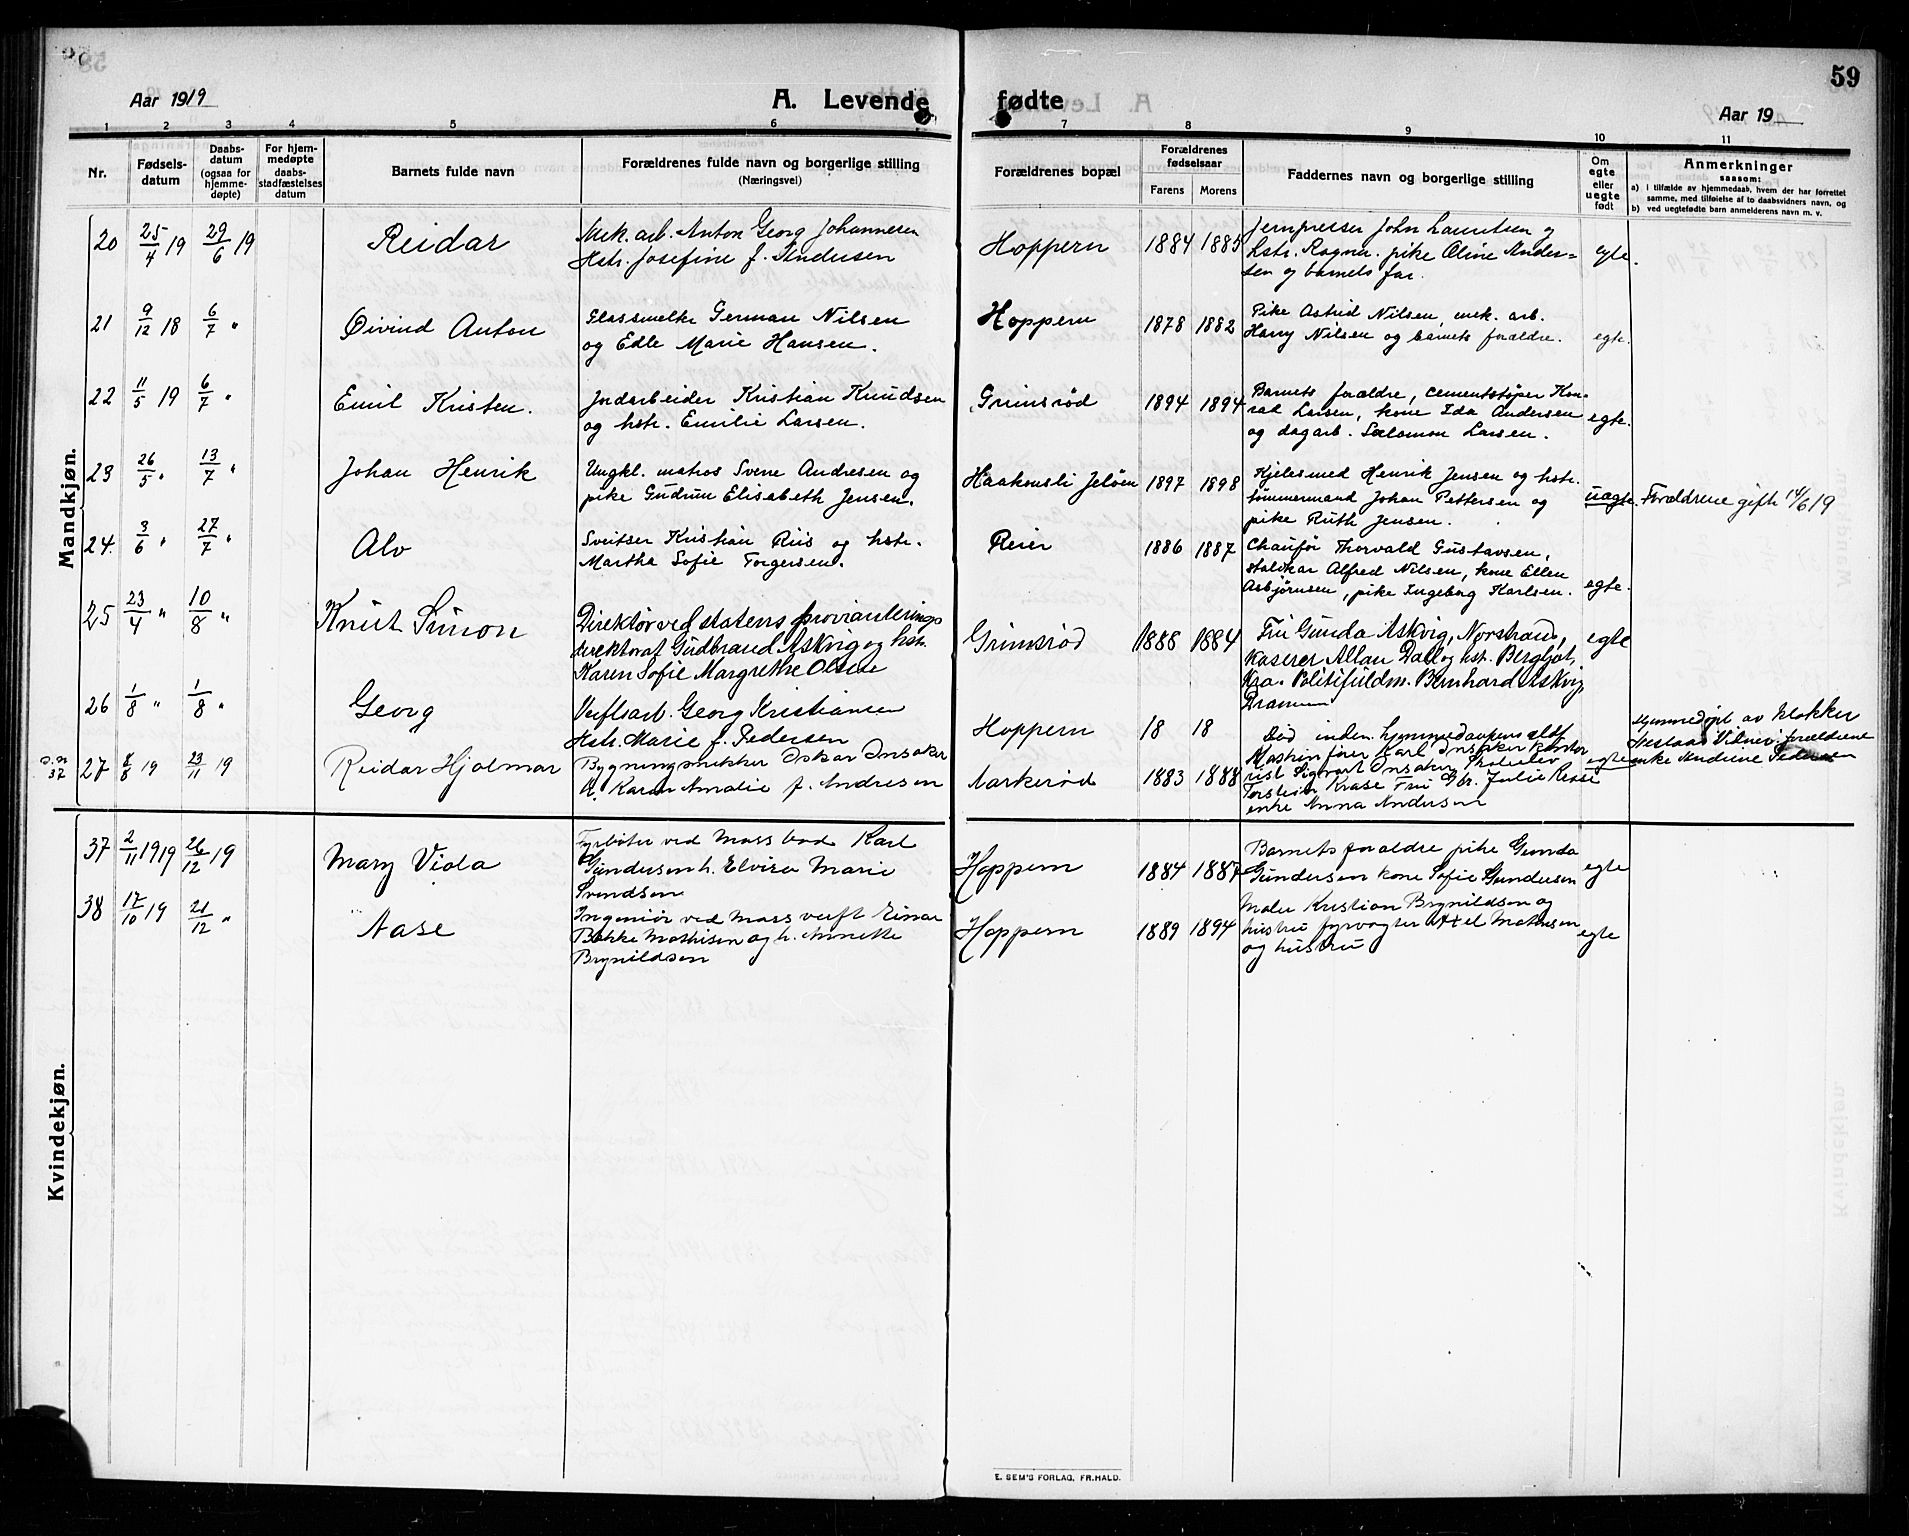 59
Aar 1919
A. Levende fødte
Aar 19
1 2 3 4 5 6 7 8 9 10 11
Nr.
Fødsels-
datum
Daabs-
datum
(ogsaa for
hjemme-
døpte)
For hjem-
medøpte
daabs-
stadfæstelses
datum
Barnets fulde navn
Forældrenes fulde navn og borgerlige stilling
(Næringsvei)
Forældrenes bopæl
Forældrenes
fødselsaar
Farens Morens
Faddernes navn og borgerlige stilling
Om
egte
eller
uegte
født
Anmerkninger
saasom:
a) i tilfælde av hjemmedaab, hvem der har forrettet
samme, med tilføielse af to daabsvidners navn, og
b) ved uegtefødte barn anmelderens navn m. v.
Mandkjøn.
20 25/4 19 29/6 19 Reidar
Mek. arb. Anton Georg Johannesen
Hstr. Josefine f. Andersen
Hoppern 1884 1885
Jernpresser John Lauritsen og
hstr. Ragna. pike Oline Ander=
sen og barnets far.
egte.
21 9/12 18 6/7 " Øivind Anton
Glassmelke German Nilsen
og Edle Marie Hansen.
Hoppern 1878 1882
Pike Astrid Nilsen, mek. arb.
Harry Nilsen og barnets forældre.
egte.
22 11/5 19 6/7 " Emil Kristen.
Jordarbeider Kristian Knudsen
og hstr. Emilie Larsen.
Grimsrød 1894 1894
Barnets forældre, cementstøper Kon-
rad Larsen, kone Ida Andersen
og dagarb. Salomon Larsen.
egte.
23 26/5 " 13/7 " Johan Henrik
Ungkl. matros Svene Andresen og
pike Gudrun Elisabeth Jensen.
Haakonsli Jeløen 1897 1898
Kjelesmed Henrik Jensen og hstr.
tømmermand Johan Pettersen og
pike Ruth Jensen.
uegte. Forældrene gift 14/6 19
24. 3/6 " 27/7 " Alv
Sveitser Kristian Riis og hstr.
Martha Sofie Torgersen.
Reier 1886 1887
Chaufør Thorvald Gustavsen,
staldkar Alfred Nilsen, kone Ellen
Asbjørnsen, pike Ingeborg Karlsen.
egte.
25 23/4 " 10/8 " Knut Simon
Direktør ved statens provianterings
direktorat Gudbrand Askvig og hstr.
Karen Sofie Margrethe Olsen
Grimsrød 1888 1884
Fru Gunda Askvig, Norstrand,
Kaserer Allan Dall og hst. Bergljot,
Kra. Politifuldm. Bernhard Askvig
Drammen
egte
26 1/8 " 1/8 " Georg
Verftsarb. Georg Kristiansen
Hstr. Marie f. Pedersen
Hoppern 18 18
Død inden hjemmedaapens stdf
egte
Hjemmedøpt av klokker
Nestaas Vidner: forældrene
enke Andrine Pedersen
37
27 8/8 19 23/11 19 Reidar Hjalmar
Bygningssnekker Oskar Onsaker
h. Karen Amalie f. Andresen
Aarkerød 1883 1888
Maskinfører Karl Onsaker kontor
ist Sigvart Onsaker
Torstein Krase Fru Julie Resse
enke Anna Andersen
Kvindekjøn.
37 2/11 1919 26/12 19 Mary Viola
Fyrbøter ved Moss bad Karl
Gundersen h. Elvira Marie
Svendsen
Hoppern 1884 1887
Barnets forældre pike Gunda
Gundersen kone Sofie Gundersen
egte
38 17/10 19 21/12 " Aase
Ingeniør ved Moss verft Einar
Bakke Mathisen og h. Annette
Brynildsen
Hoppern 1889 1894
Maler Kristian Brynildsen og
hustru fyrvogter Axel Mathisen
og hustru
egte
E. SEM'S FORLAG, FR.HALD.